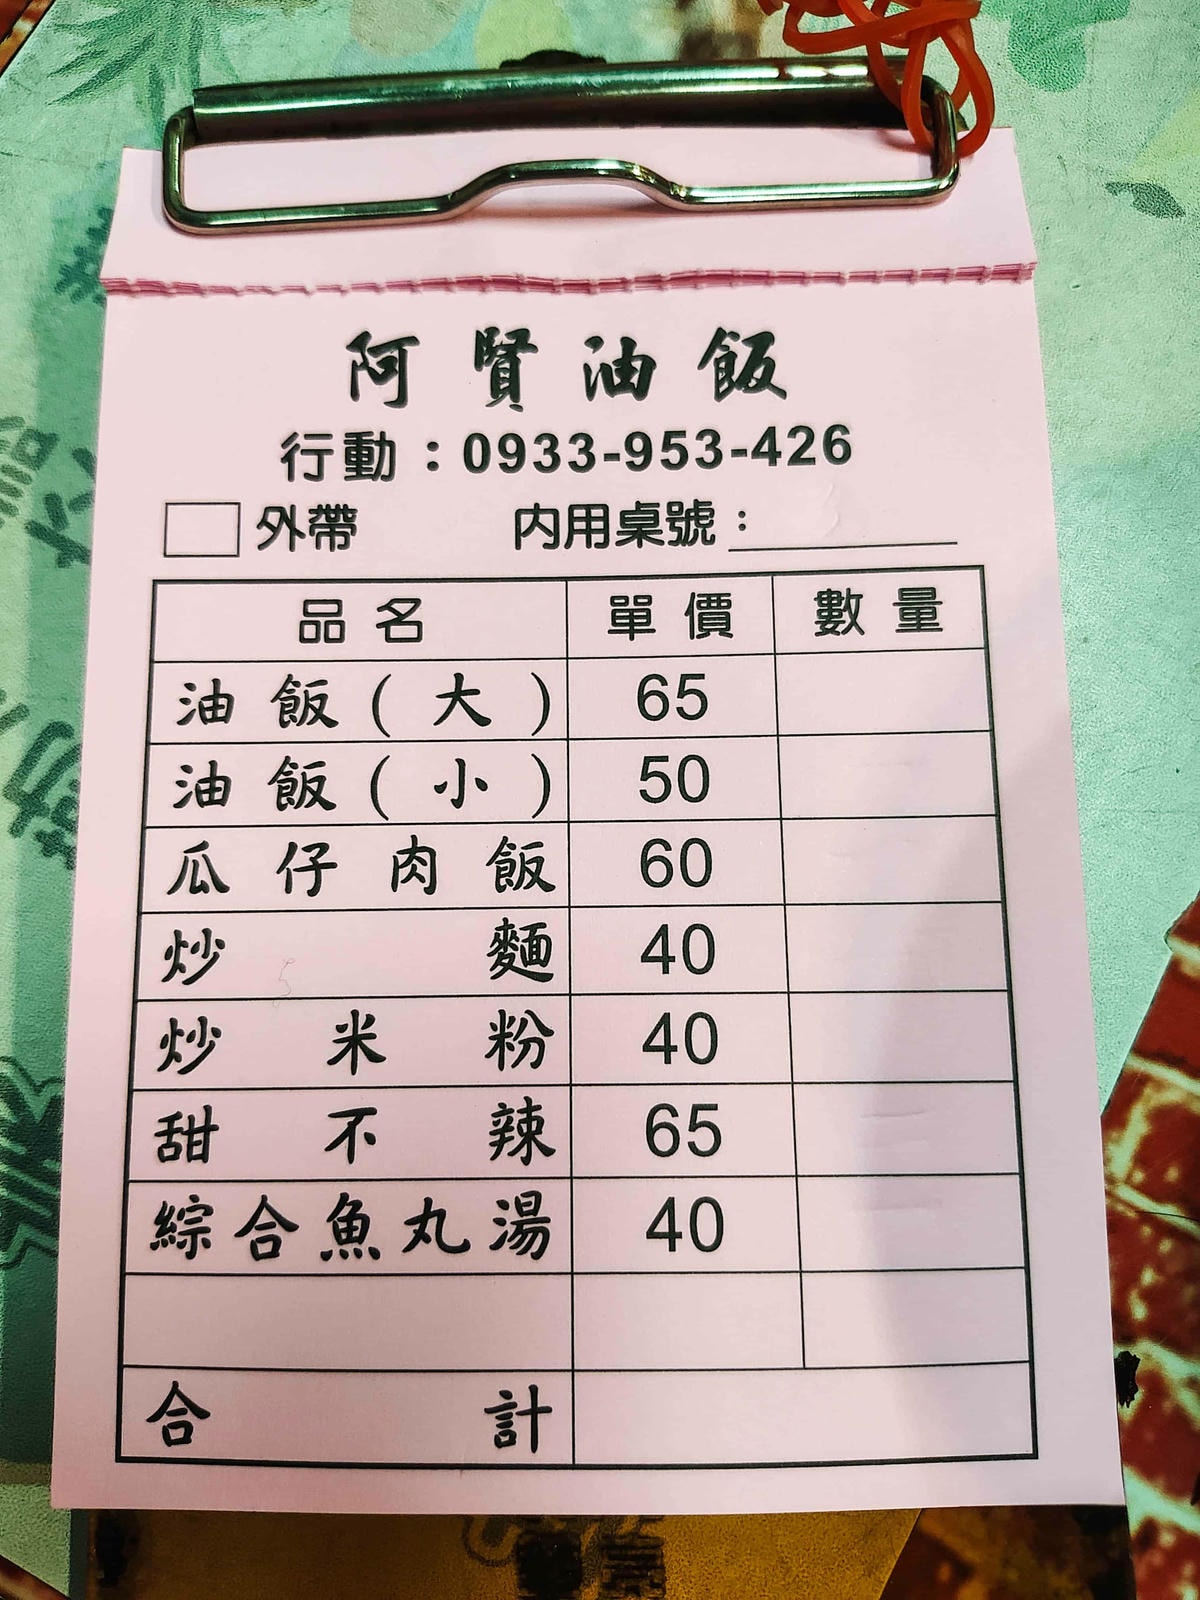 阿賢油飯
行動：0933-953-426
外帶 內用桌號：
品名 單價 數量
油飯(大) 65
油飯(小) 50
瓜仔肉飯 60
炒麵 40
炒米粉 40
甜不辣 65
綜合魚丸湯 40
合計